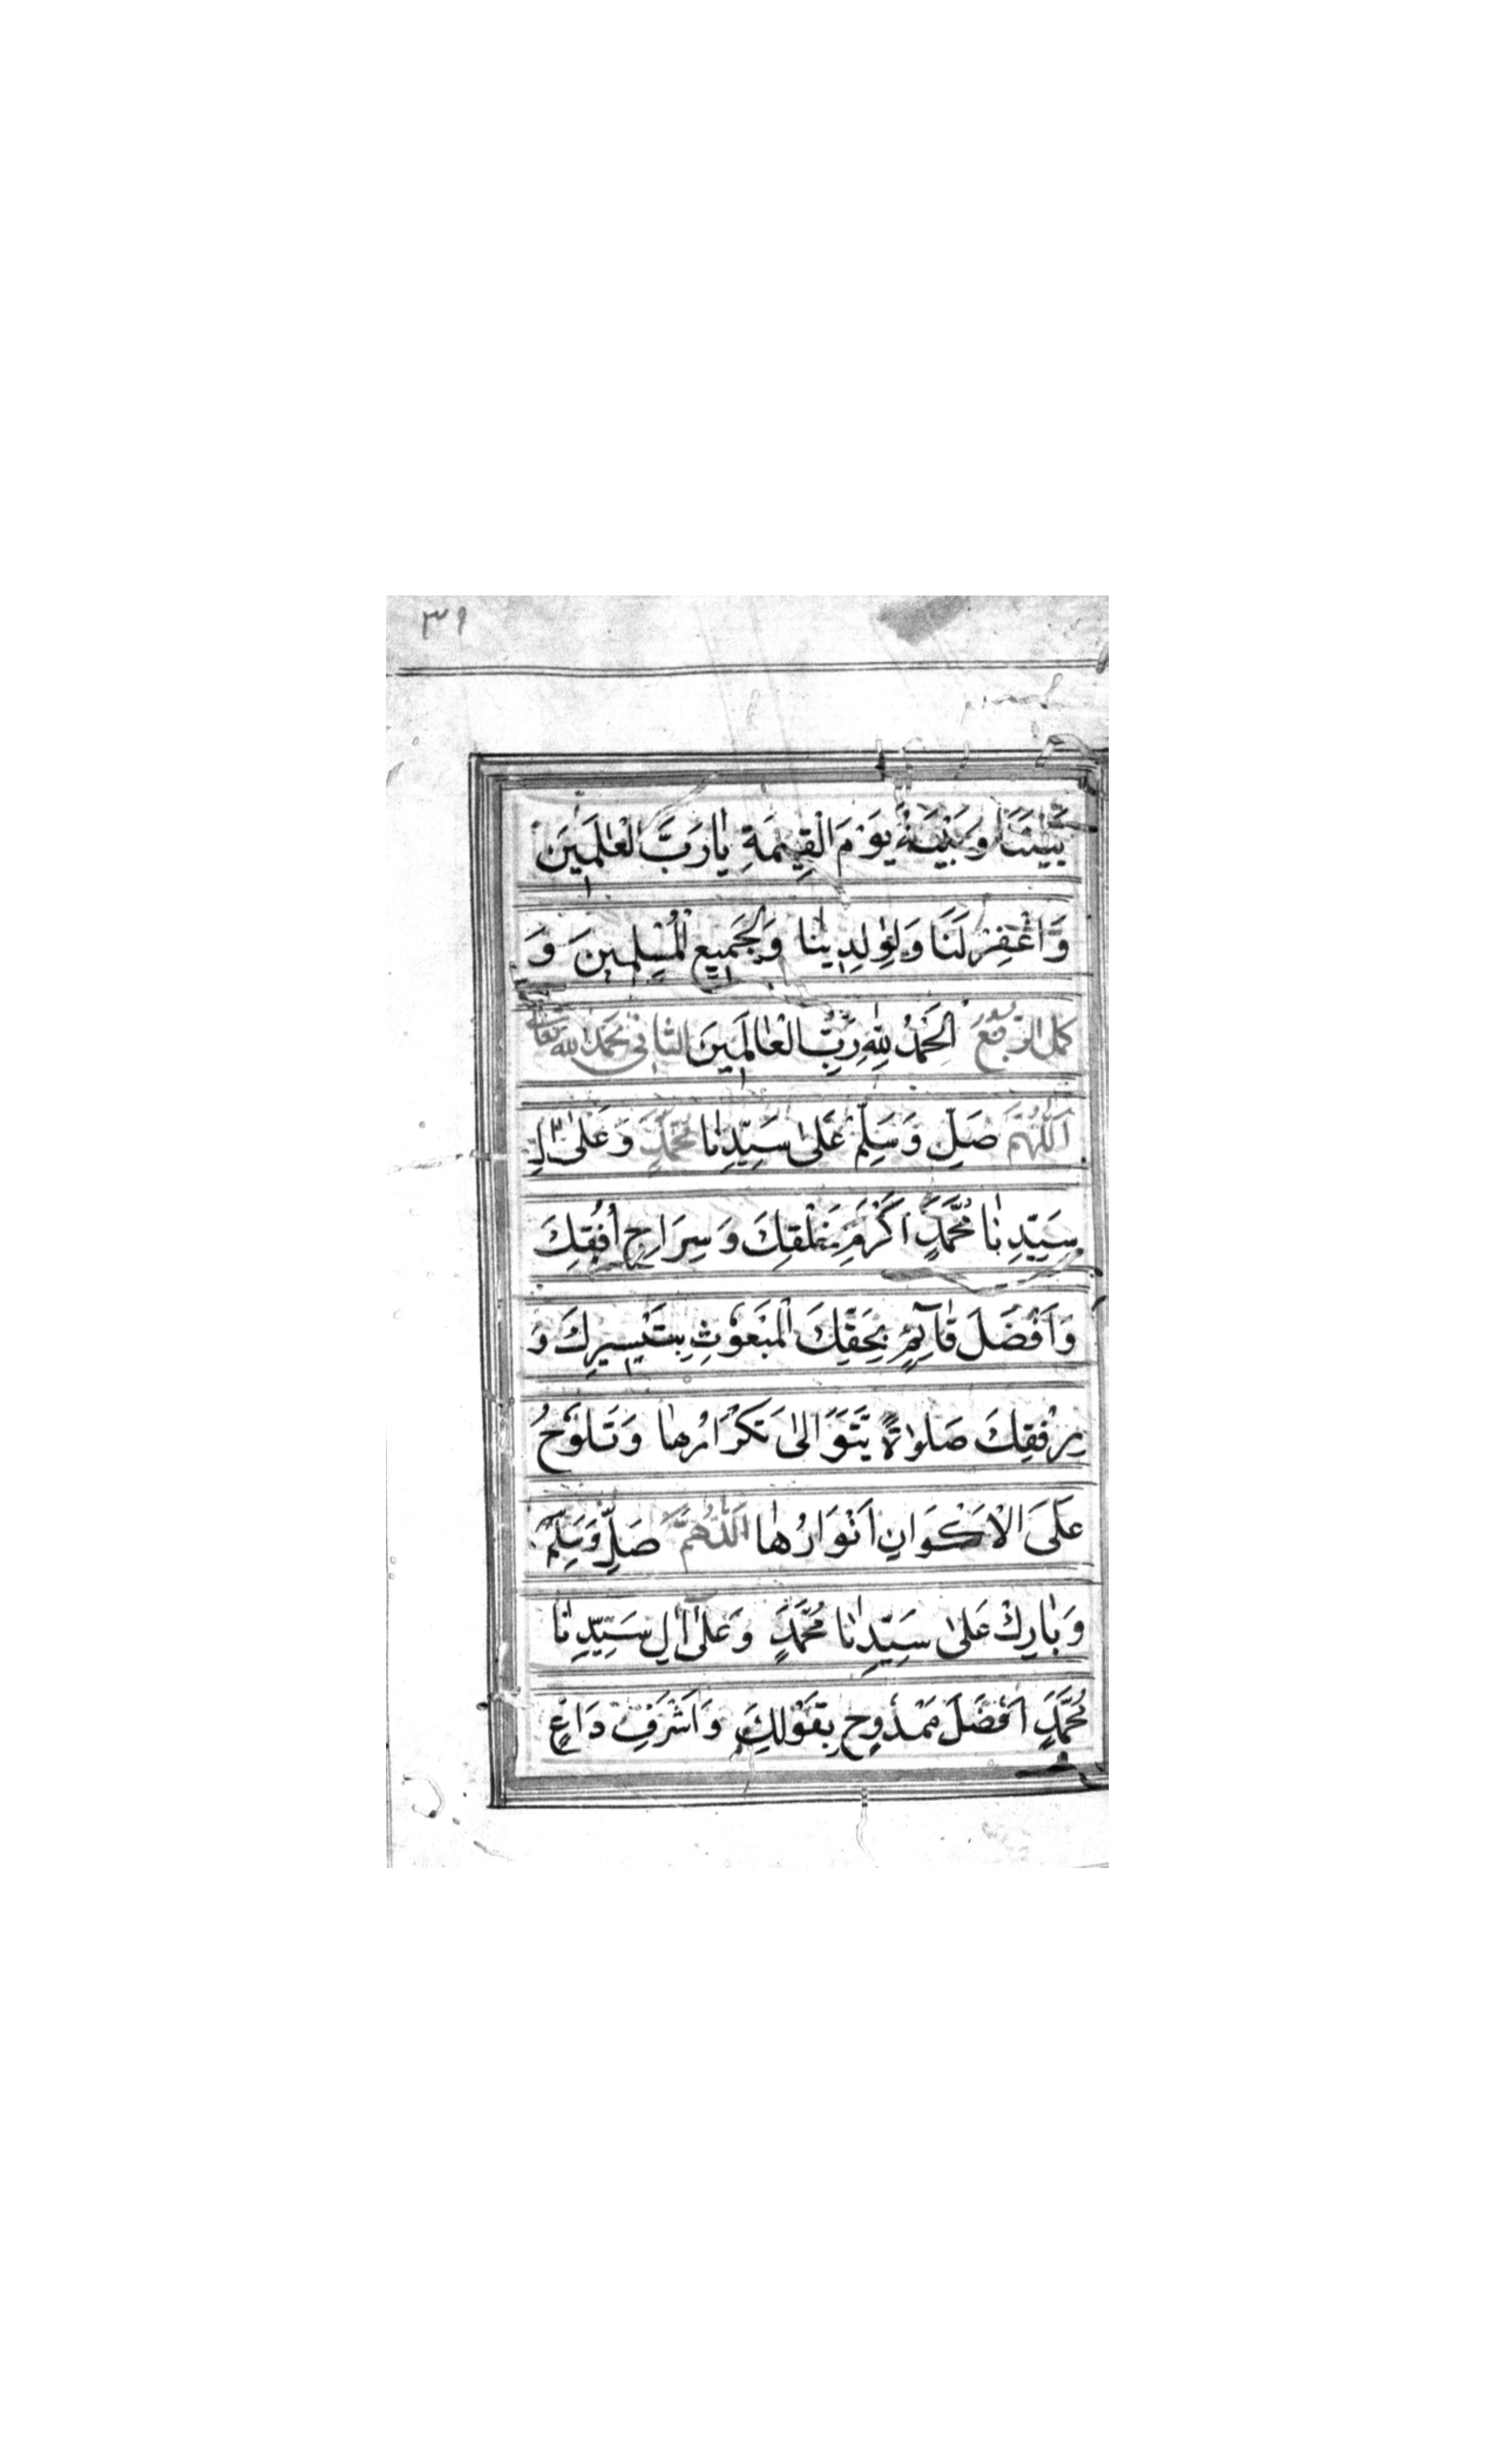 ٣١
بَيْنَنَا وَبَيْنَهُ يَوْمَ الْقِيٰمَةِ يٰارَبَّ الْعٰالَمِيْنَ
وَاغْفِرْ لَنَا وَلِوٰالِدِيْنٰا وَلِجَمِيعِ الْمُسْلِمِينَ وَ
كمل الربع الْحَمْدُ لِلّٰهِ رَبِّ الْعٰالَمِيْنَ الثاني بحمد الله تعالى
اَللّٰهُمَّ صَلِّ وَسَلِّمْ عَلىٰ سَيِّدِنٰا مُحَمَّدٍ وَعَلىٰ اٰلِ
سَيِّدِنٰا مُحَمَّدٍ اَكْرَمِ خَلْقِكَ وَسِرَاجِ اُفُقِكَ
وَاَفْضَلَ قٰآئِمٍ بِحَقِّكَ الْمَبْعُوْثِ بِتَيْسِيرِكَ وَ
رِفْقِكَ صَلوٰاةً يَتَوَالىٰ تَكْرَارُهٰا وَتَلُوْحُ
عَلَى الْاَكْوَانِ اَنْوَارُهٰا اَللّٰهُمَّ صَلِّ وَسَلِّمْ
وَبٰارِكْ عَلىٰ سَيِّدِنٰا مُحَمَّدٍ وَعَلىٰ اٰلِ سَيِّدِنٰا
مُحَمَّدٍ اَفْضَلَ مَمْدُوْحٍ بِقَوْلِكَ وَاَشْرَفِ دَاعٍ